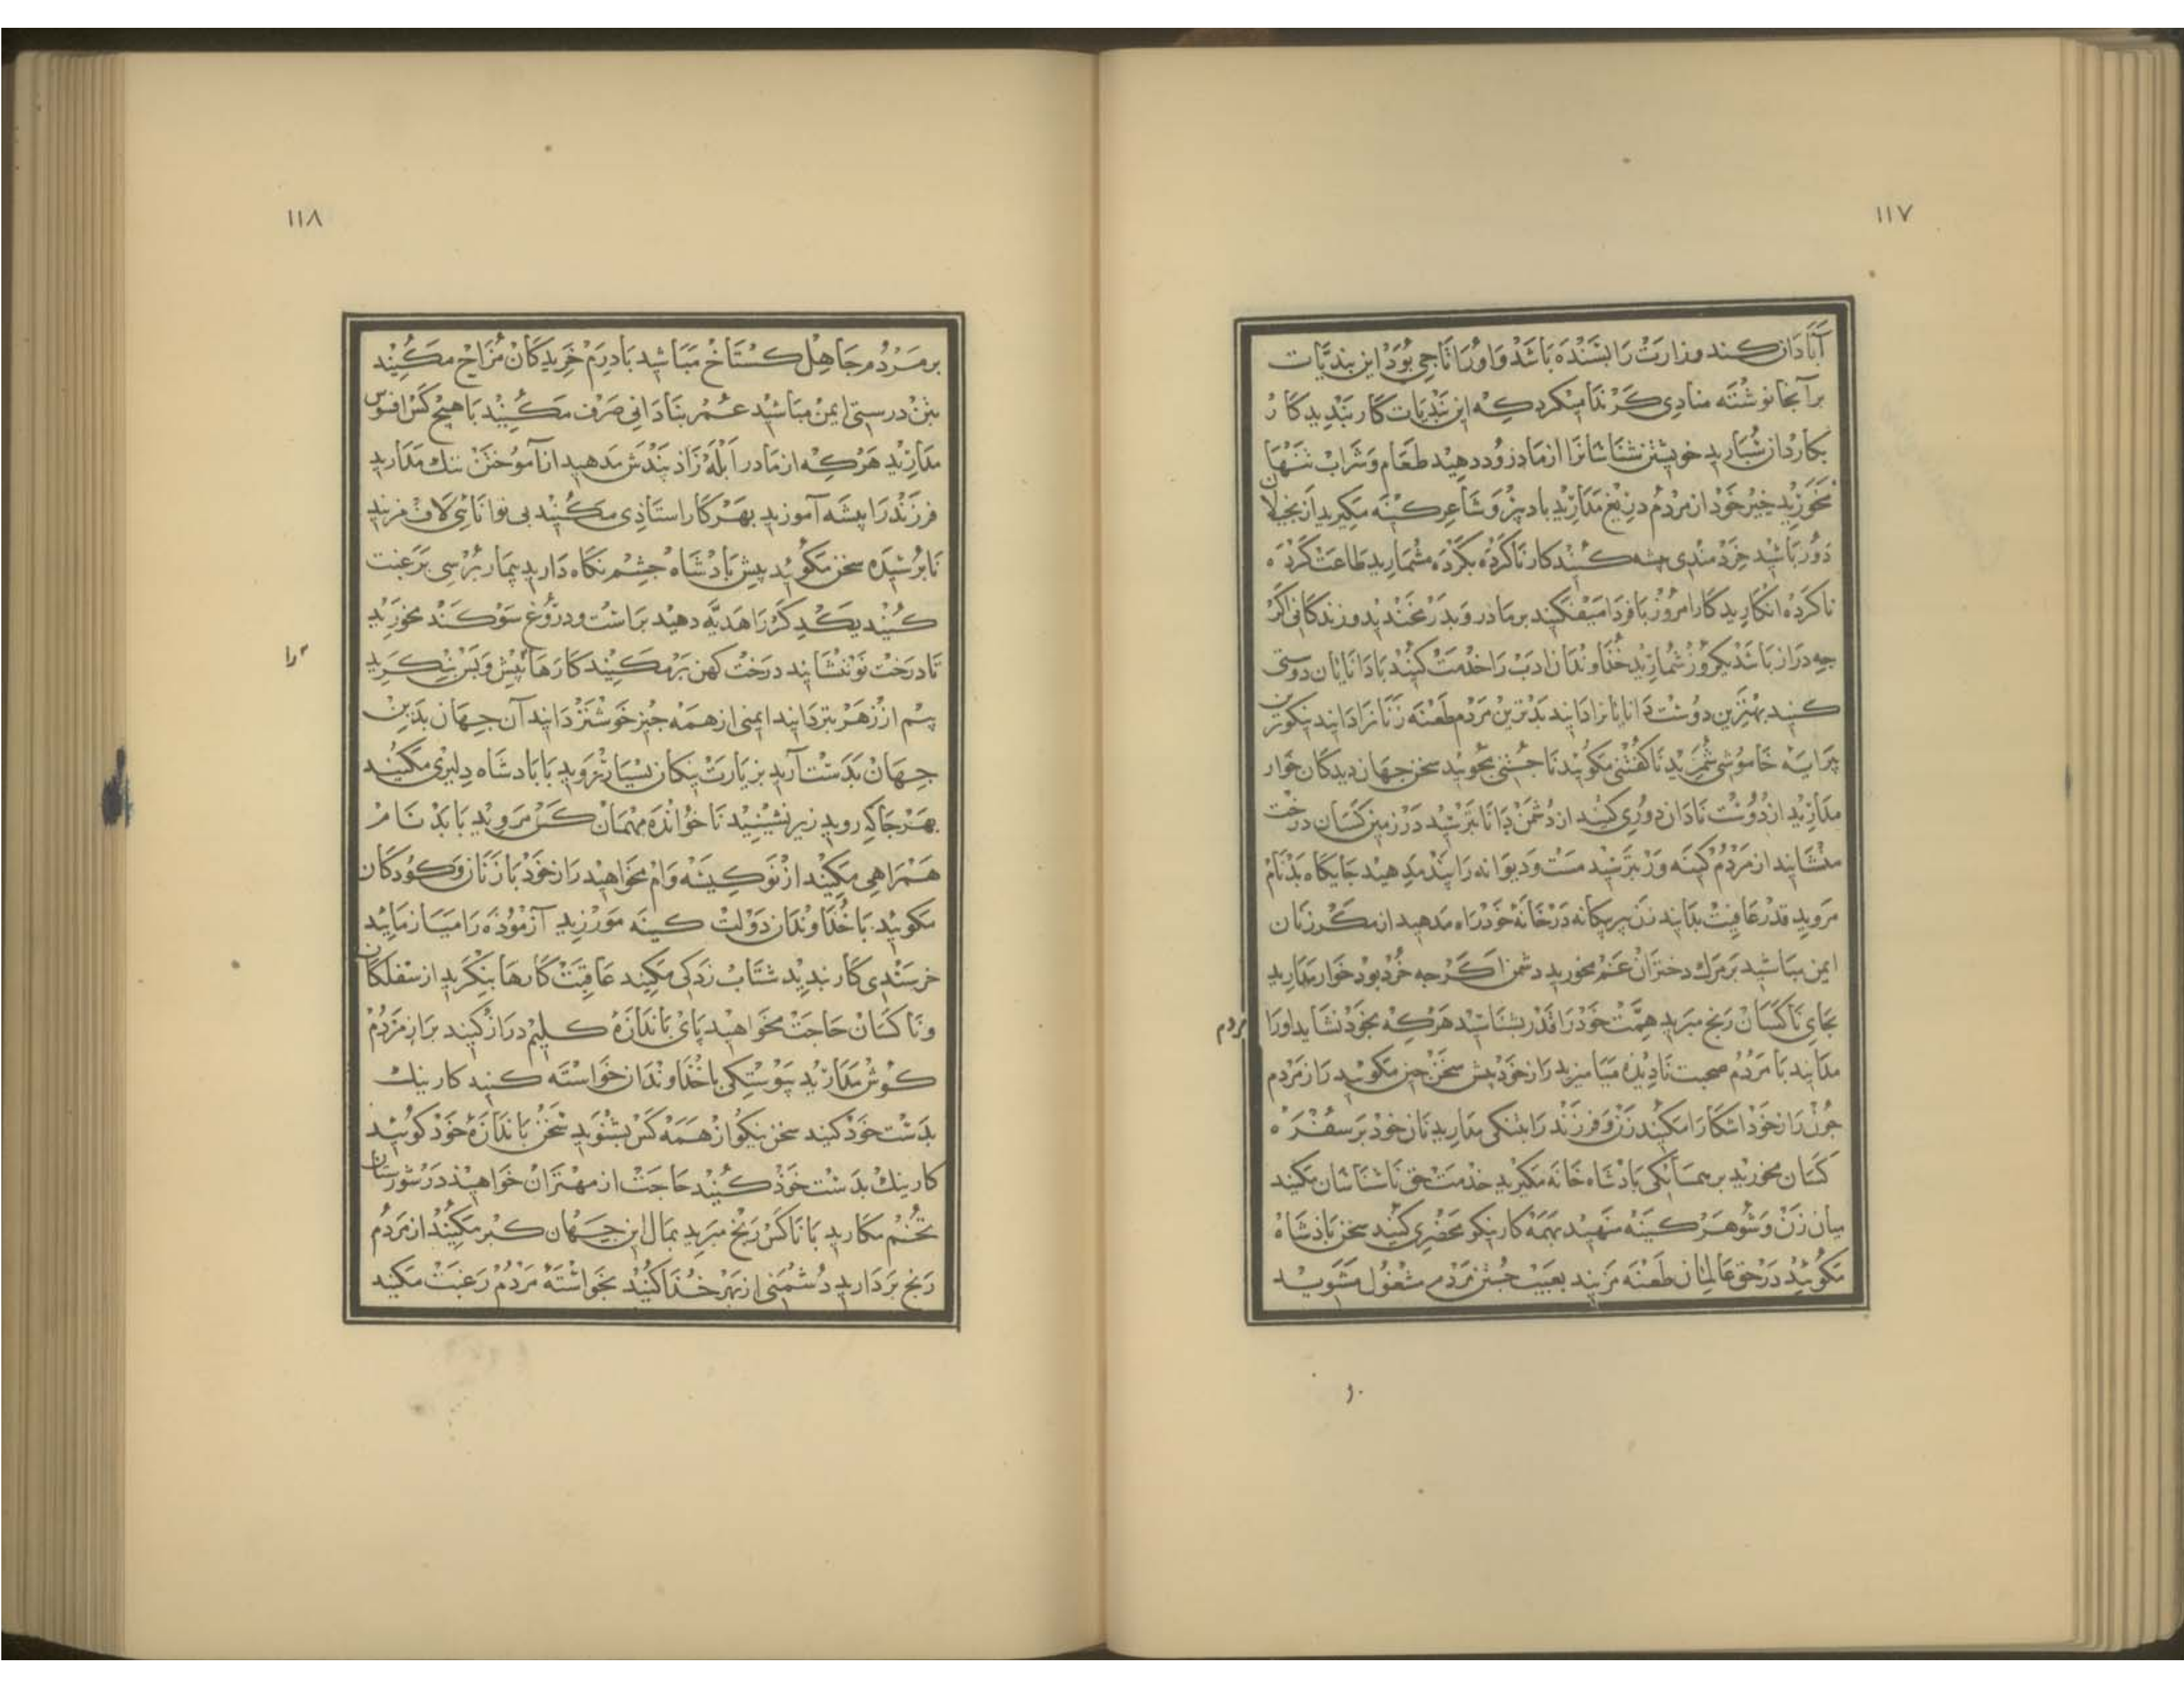 ۱۱۷
آبادان کند وزارت را بسنده باشد واورا تاجی بود این بندیات
برآنجا نوشته منادی کر ندا میکرد که این بندیات کار بندید کار
بکاردان سبارید خویشتن شناسانرا از ما درود دهید طعام وشراب تنها
مخورید خیر خود از مردم دریغ مدارید با دبیر وشاعر کینه مکیرید از بخیلان
دور باشید خردمندی بیشه کنید کار ناکرده بکرده مشمارید طاعت کرده
ناکرده انکارید کار امروز بافردا میفکنید بر مادر وبدر مخندید وزندکانی اکر
جه دراز باشد یکروز شمارید خداوندان ادب را خدمت کنید با دانایان دوستی
کنید بهترین دوست دانایانرا دانید بدترین مردم طعنه زنانرا دانید نیکوترین
پیرایه خاموشی شمرید ناکفتنی مکوئید ناجستنی مجوئید سخن جهان دیدکان خوار
مدارید از دوست نادان دوری کنید از دشمن دانا بترسید در زمین کسان درخت
منشانید از مردم کینه ور بترسید مست ودیوانه را پند مدهید جایکاه بدنام
مروید قدر عافیت بدانید زن بیکانه در خانه خود راه مدهید از مکر زنان
ایمن مباشید بر مرک دختران غم مخورید دشمن اکرجه خرد بود خوار مدارید
بجای ناکسان رنج مبرید همت خود را قدر بشناسید هرکه بخود نشاید اورا
مردم
مدانید با مردم صحبت نادیده میامیزید راز خود پیش سخن جین مکویید راز مردم
جون راز خود اشکارا مکنید زن وفرزند را بتنکی مدارید نان خود بر سفره
کسان مخورید بر همسایکی بادشاه خانه مکیرید خدمت حق ناشناسان مکنید
میان زن وشوهر کینه منهید بهمه کار نیکو محضری کنید سخن بادشاه
مکوئید در حق عالمان طعنه مزنید بعیب جستن مردم مشغول مشوید
۱۱۸
بر مردم جاهل کستاخ مباشید با درم خریدکان مزاح مکنید
بتن درستی ایمن مباشید عمر بنادانی صرف مکنید با هیچ کس افسوس
مدارید هرکه از مادر ابله زاد پندش مدهید از آموختن ننک مدارید
فرزند را پیشه آموزید بهر کار استاذی مکنید بی توانائی لاف مزنید
نابرسیده سخن مکوئید پیش بادشاه جشم نکاه دارید بیمار برسی برغبت
کنید یکدیکر را هدیه دهید براست ودروغ سوکند مخورید
تا درخت نو ننشانید درخت کهن بر مکنید کارها پیش وپس بنکرید
را
ستم از زهر بتر دانید ایمنی از همه جیز خوشتر دانید آن جهان بدین
جهان بدست آرید بزیارت نیکان بسیار روید با بادشاه دلیری مکنید
بهر جا که روید زیر نشینید ناخوانده مهمان کس مروید با بد نام
همراهی مکنید از نو کیسه وام مخواهید راز خود با زنان وکودکان
مکوئید با خداوندان دولت کینه مورزید آزموده را میازمایید
خرسندی کار بندید شتاب زدکی مکنید عاقبت کارها بنکرید از سفلکان
وناکسان حاجت مخواهید پای باندازه کلیم دراز کنید براز مردم
کوش مدارید پیوستکی با خداوندان خواسته کنید کار نیک
بدست خود کنید سخن نیکو از همه کس بشنوید سخن باندازه خود کوئید
کار نیک بدست خوذ کنید حاجت از مهتران خواهید در شورستان
تخم مکارید با ناکس رنج مبرید بمال این جهان کبر مکنید از مردم
رنج بردارید دشمنی از بهر خدا کنید بخواسته مردم رغبت مکنید